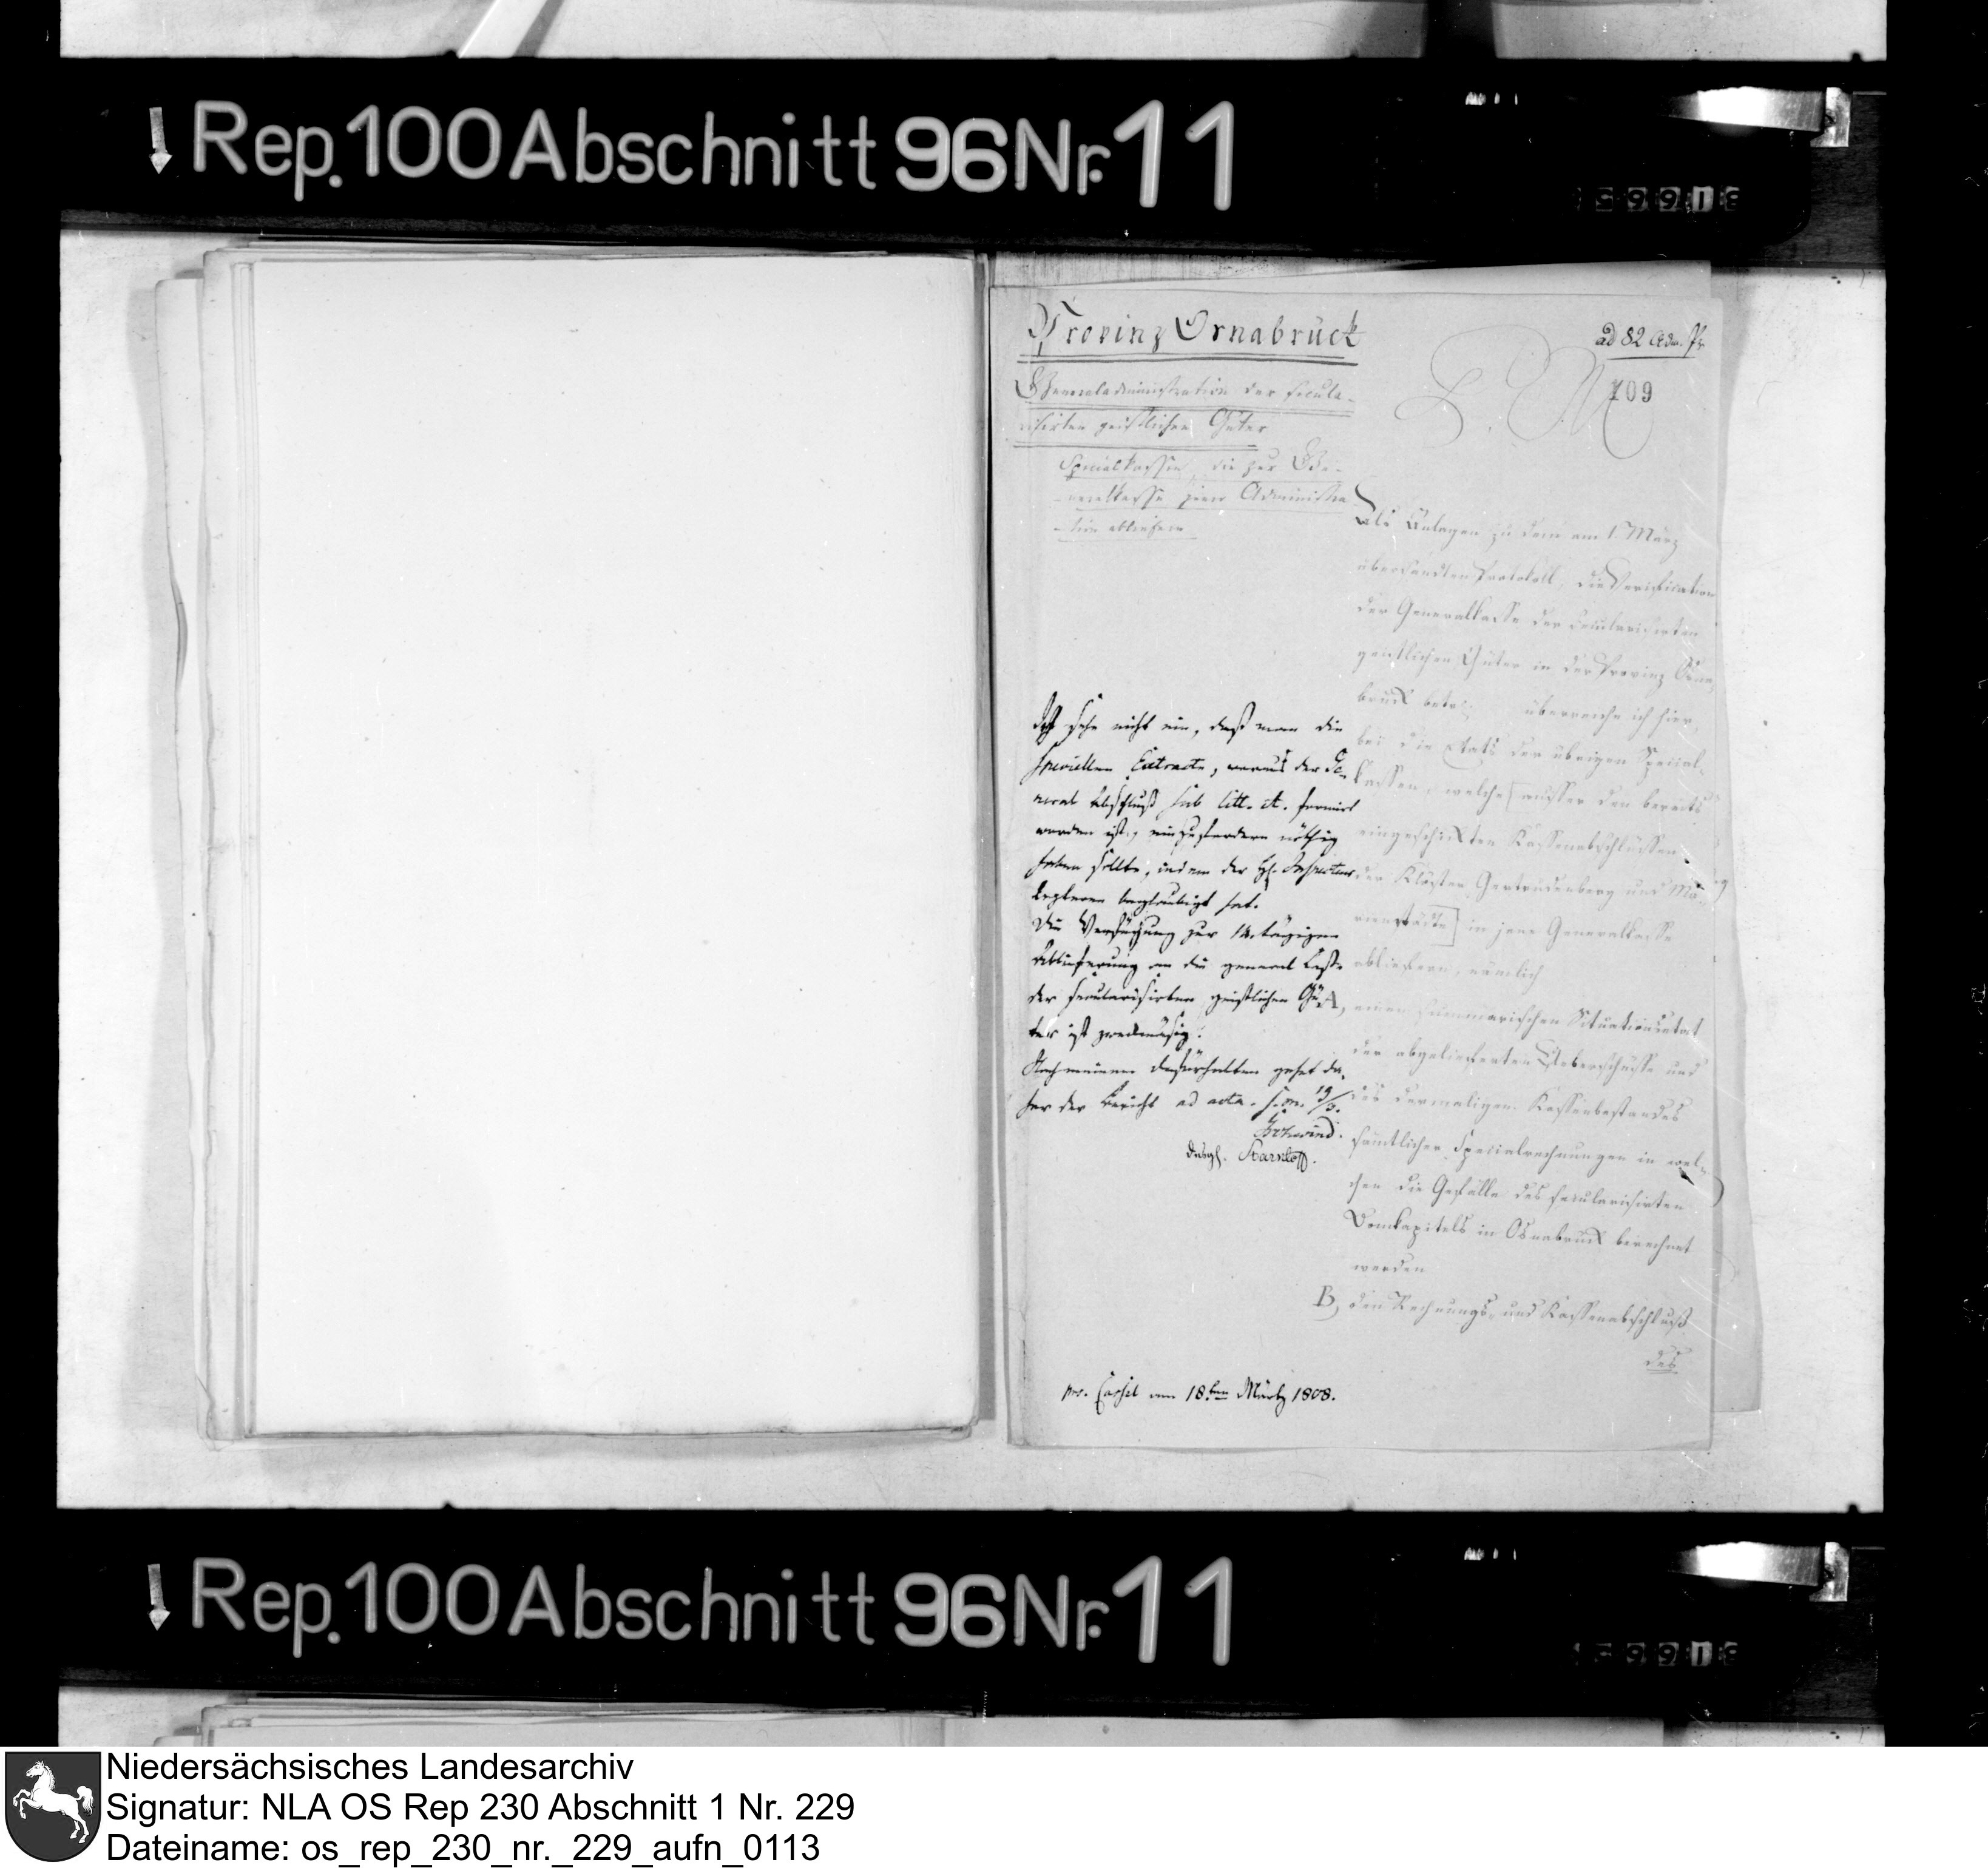 Rep. 100 Abschnitt 96 Nr. 11
Provinz Osnabrück
ad 82 Adm.
109
P. M.
Generaladministration der secula-
risirten geistlichen Güter
Specialkassen, die zur Ge-
neralkasse jener Administra-
tion abliefern
Als Anlagen zu dem am 1. März
übersandten Protokoll, die Verification
der Generalkasse der secularisirten
geistlichen Güter in der Provinz Osna-
brück betr. überreiche ich hier-
bei die Etats der übrigen Special-
kassen, welche [ausser den bereits
eingeschickten Kassenabschlüssen
der Klöster Gertrudenberg und Ma-
rienstädte] in jene Generalkasse
abliefern, nämlich
A, einen summarischen Situationsetat
der abgelieferten Ueberschüsse und
des dermaligen Kassenbestandes
sämtlicher Specialrechnungen in wel-
chen die Gefälle des secularisirten
Domkapitels in Osnabrück berechnet
werden
B, den Rechnungs- und Kassenabschluß
des
Ich sehe nicht ein, daß man die
speciellen Extracte, woraus der Ge-
neral Abschluß sub litt. A. formirt
worden ist, einzufordern nöthig
haben sollte, indem der H. Inspecteur
letzteren beglaubigt hat.
Die Verfügung zur 14tägigen
Ablieferung an die general Casse
der secularisirten geistlichen Gü-
ter ist zweckmäsig.
Nach meinem Dafürhalten gehet da-
her der Bericht ad acta. s. m. 19/3.
desgl.
pr. Cassel am 18ten Märtz 1808.
Rep. 100 Abschnitt 96 Nr. 11
Niedersächsisches Landesarchiv
Signatur: NLA OS Rep 230 Abschnitt 1 Nr. 229
Dateiname: os_rep_230_nr._229_aufn_0113